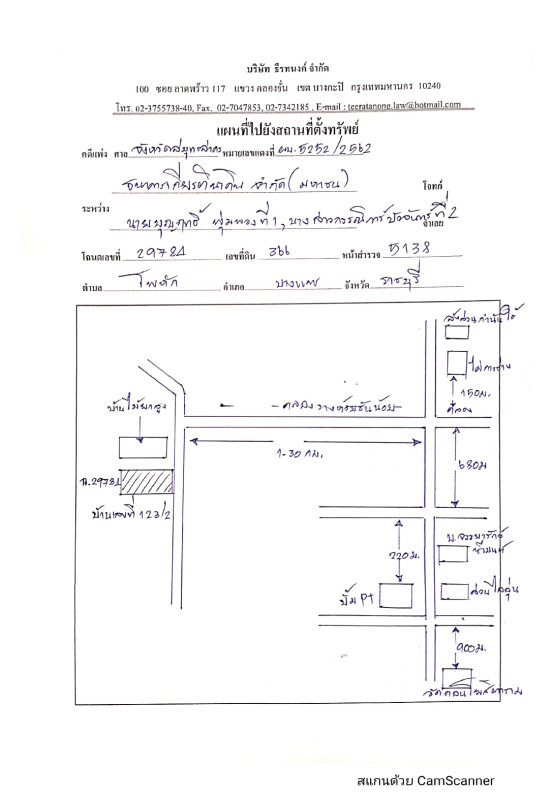 บริษัท ธีรทนงค์ จำกัด
100 ซอย ลาดพร้าว 117 แขวง คลองจั่น เขต บางกะปิ กรุงเทพมหานคร 10240
โทร. 02-3755738-40, Fax. 02-7047853, 02-7342185 , E-mail : teeratanong.law@hotmail.com
แผนที่ไปยังสถานที่ตั้งทรัพย์
คดีแพ่ง ศาล จังหวัดสมุทรสาคร หมายเลขแดงที่ ผบ.5252/2562
ธนาคารเกียรตินาคิน จำกัด (มหาชน) โจทก์
ระหว่าง
นายบุญฤทธิ์ พุ่มพวง ที่ 1, นางสาวกรรณิการ์ บัวจันทร์ ที่ 2 จำเลย
โฉนดเลขที่ 29781 เลขที่ดิน 366 หน้าสำรวจ 5138
ตำบล โพหัก อำเภอ บางแพ จังหวัด ราชบุรี
ไม้การช่าง
150 ม.
คลอง
บ้านไม้ยกสูง
1-30 กม.
680 ม
ฉ.29781
บ้านเลขที่ 123/2
220 ม.
ปั๊ม PT
900 ม.
สแกนด้วย CamScanner